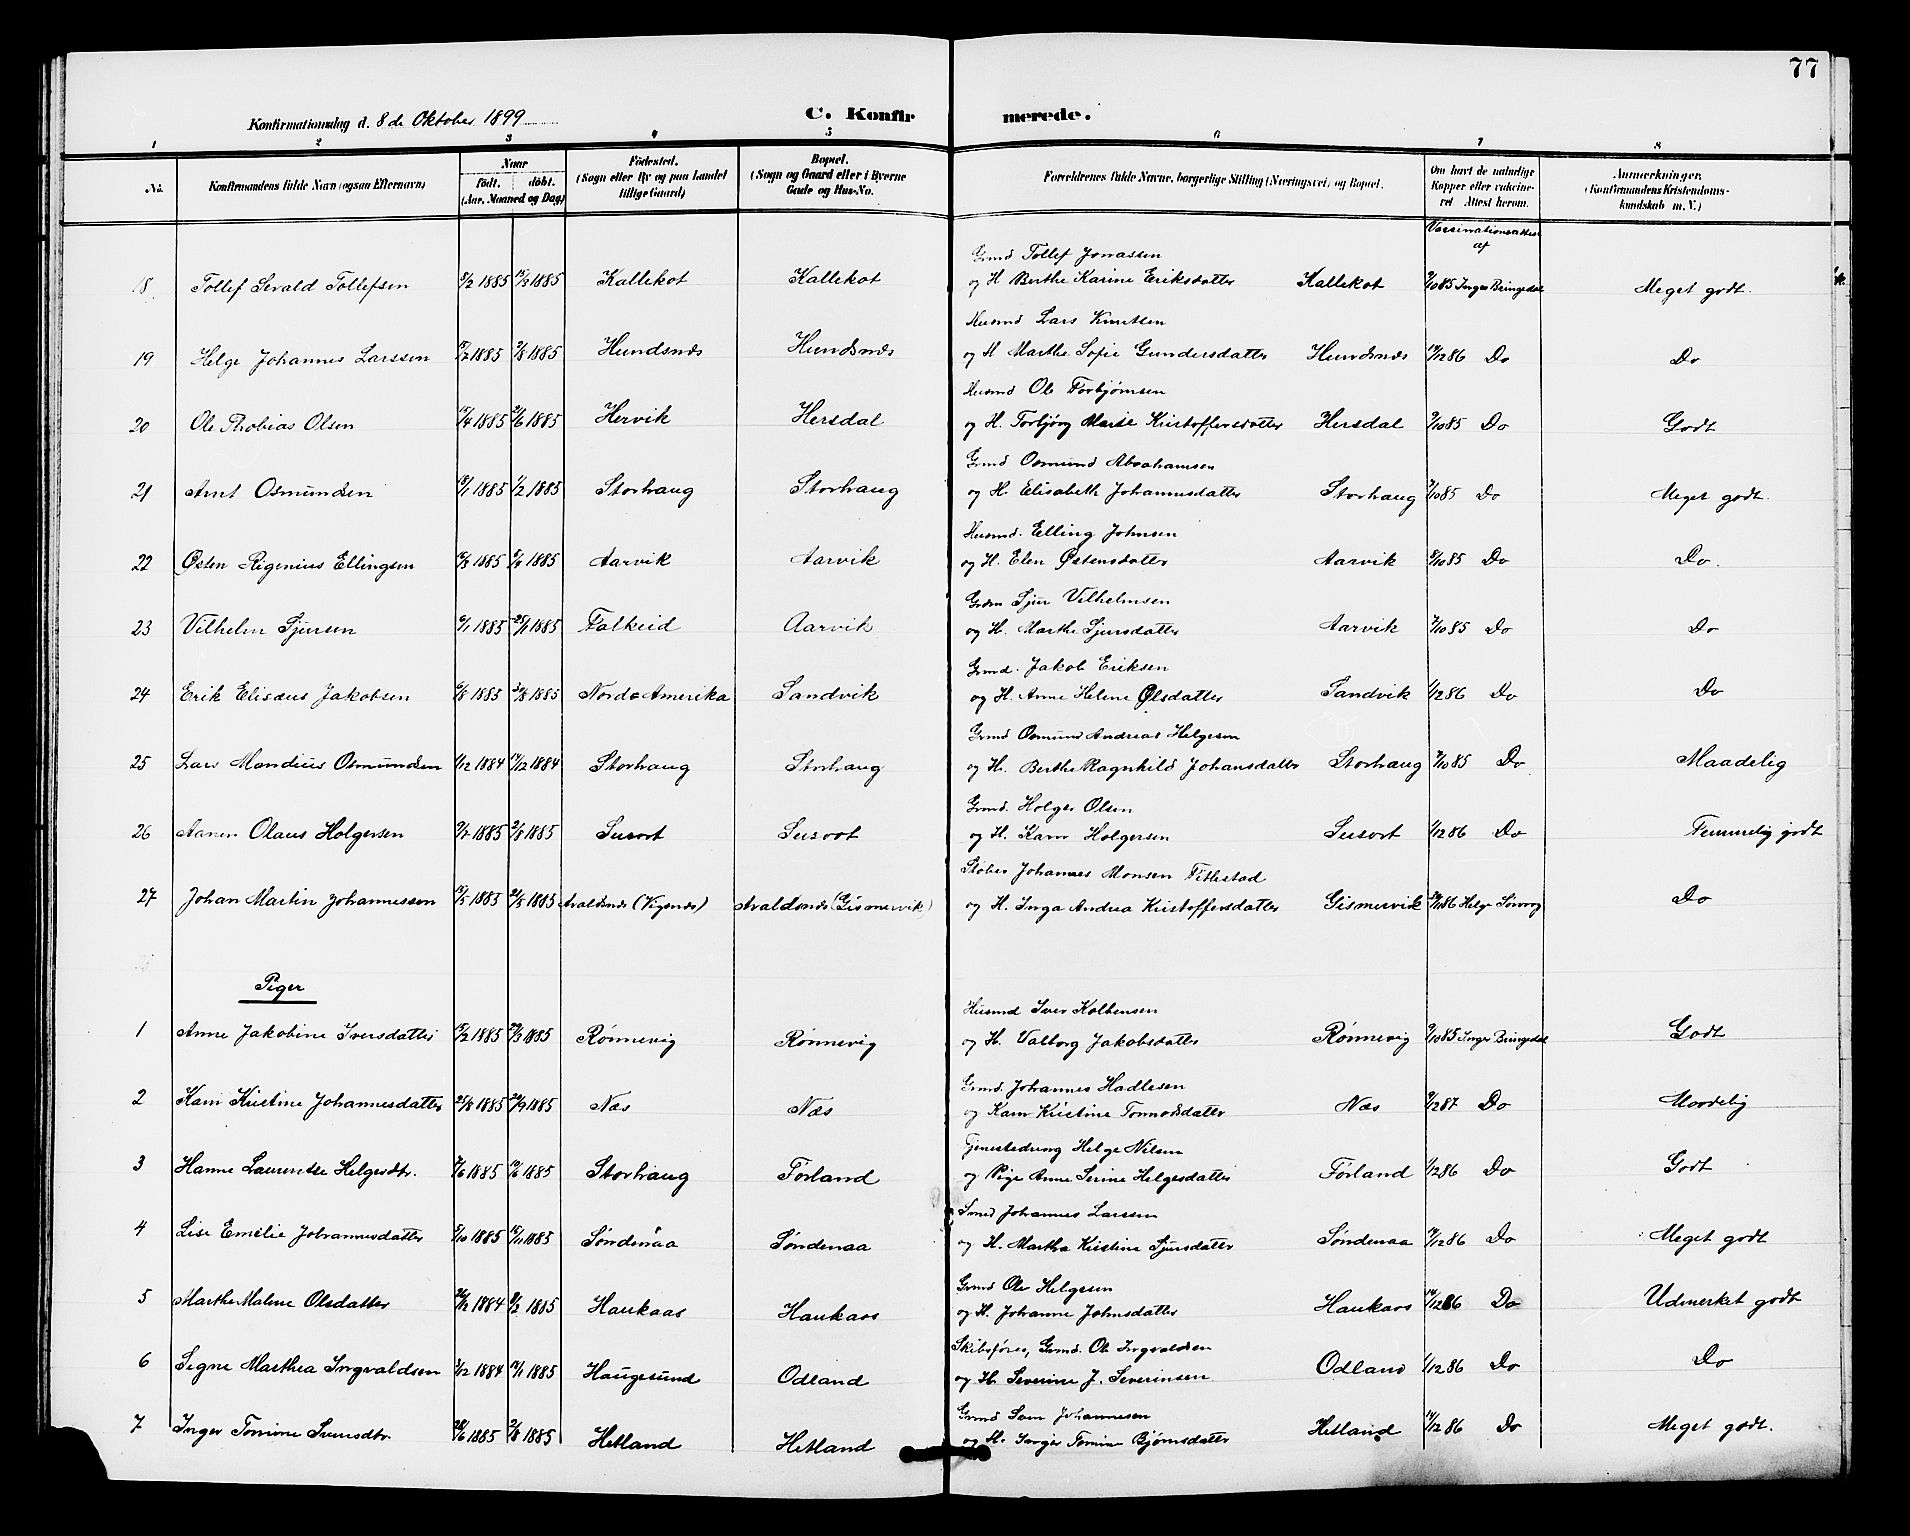 77
Konfirmationsdag d. 8de Oktober 1899
C. Konfirmerede.
1 2 3 4 5 6 7 8
No. Konfirmandens fulde Navn (ogsaa Efternavn) Naar født. døbt. (Aar, Maaned og Dag) Fødested. (Sogn eller By og paa Landet tillige Gaard) Bopæl. (Sogn og Gaard eller i Byerne Gade og Hus-No. Forældrenes fulde Navne, borgerlige Stilling (Næringsvei) og Bopæl. Om havt de naturlige Kopper eller vakcineret Attest herom. Anmærkninger. (Konfirmandens Kristendomskundskab m. V.)
Vaccinationsattest af
Gmd Tollef Jonassen
18 Tollef Sevald Tollefsen 8/2 1885 /3 1885 Kallekot Kallekot og H Berthe Karine Eriksdatter Kallekot 9/10 85 Inger Bringedal Meget godt.
Husmd Lars Knutsen
19 Helge Johannes Larssen /7 1885 /8 1885 Hundsnæs Hundsnæs og H Marthe Sofie Gundersdatter Hundsnæs 14/12 86 Do Do
Husmd Ole Torbjørnsen
20 Ole Thobias Olsen /4 1885 /6 1885 Hervik Hersdal og H. Torbjørg Marie Kristoffersdatter Hersdal 9/10 85 Do Godt
Gmd Osmund Abrahamsen
21 Arnt Osmundsen /1 1885 1/2 1885 Storhaug Storhaug og H. Elisabeth Johannesdatter Storhaug 9/10 85 Do Meget godt.
Husmd. Elling Johnsen
22 Østen Rigenius Ellingsen /3 1885 1885 Aarvik Aarvik og H. Elen Østensdatter Aarvik 8/10 85 Do Do.
Gdm Sjur Vilhelmsen
23 Vilhelm Sjursen 6/1 1885 25/1 1885 Falkeid Aarvik og H. Marthe Sjursdatter Aarvik 9/10 85 Do Do
Gmd. Jakob Eriksen
24 Erik Elisæus Jakobsen 6/8 1885 /8 1885 Nord-Amerika Sandvik og H. Anne Helene Olsdatter Sandvik 1/12 86 Do Do
Gmd Osmund Andreas Helgesen
25 Lars Mandius Osmundsen 1/12 1884 14/12 1884 Storhaug Storhaug og H. Berthe Ragnhild Johansdatter Storhaug 9/10 85 Do Maadelig
Gmd. Holger Olsen
26 Aanen Olaus Holgersen 9/7 1885 2/8 1885 Susort Susort og H. Kari Holgersen Susort 1/12 86 Do Temmelig godt
Støber Johannes Monsen Titlestad
27 Johan Martin Johannessen /5 1885 /5 1885 Avaldsnæs (Vigsnæs) Avaldsnæs (Gismervik) og H. Inga Andrea Kristoffersdatter Gismervik 29/1 86 Helge Sørvaag Do
Piger
Husmd Iver Kolbensen
1 Anne Jakobine Iversdatter /2 1885 /3 1885 Rønnevig Rønnevig og H. Valborg Jakobsdatter Rønnevig 9/10 85 Inger Bringedal Godt
Gmd. Johannes Hadlesen
2 Kari Kristine Johannesdatter 25/8 1885 20/9 1885 Næs Næs og Kari Kristine Tormodsdatter Næs 9/12 87 Do Maadelig
Tjenestedreng Helge Nilsen
3 Hanne Laurentse Helgesdtr. /6 1885 /6 1885 Storhaug Førland og Pige Anne Serine Helgesdatter Førland 1/12 86 Do Godt
Smed Johannes Larssen
4 Lise Emelie Johannesdatter 5/10 1885 15/11 1885 Søndenaa Søndenaa og H. Martha Kristine Sjursdatter Søndenaa 14/12 86 Do Meget godt
Gmd Ole Helgesen
5 Marthe Malene Olsdatter /12 1884 8/2 1885 Haukaas Haukaas og H. Johanne Johnsdatter Haukaas 14/12 86 Do Udmerket godt
Skibsfører, Gmd. Ole Ingvaldsen
6 Signe Marthea Ingvaldsen 3/12 1884 /1 1885 Haugesund Odland og H. Severine J. Severinsen Odland 1/12 86 Do Do
Gmd Sven Johannesen
7 Inger Tomine Svensdtr. /6 1885 2/8 1885 Hetland Hetland og H. Inger Tomine Bjørnsdatter Hetland 14/12 86 Do Meget godt.